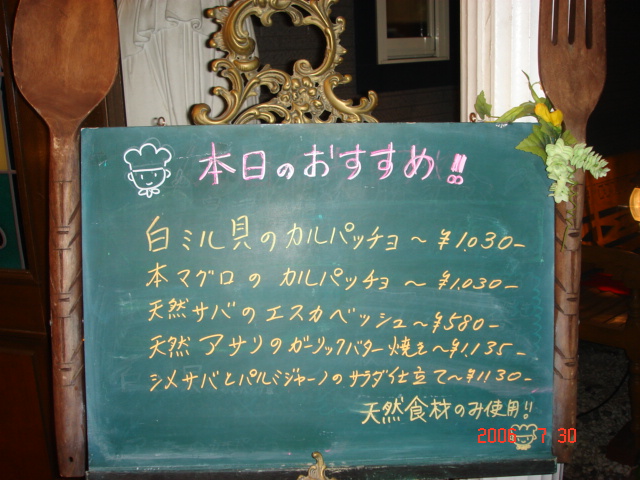 本日のおすすめ!!
白ミル貝のカルパッチョ〜¥1.030-
本マグロのカルパッチョ〜¥1.030-
天然サバのエスカベッシュ〜¥580-
天然アサリのガーリックバター焼き〜¥1.135-
シメサバとパルミジャーノのサラダ仕立て〜¥1130-
天然食材のみ使用!!
2006 7 30